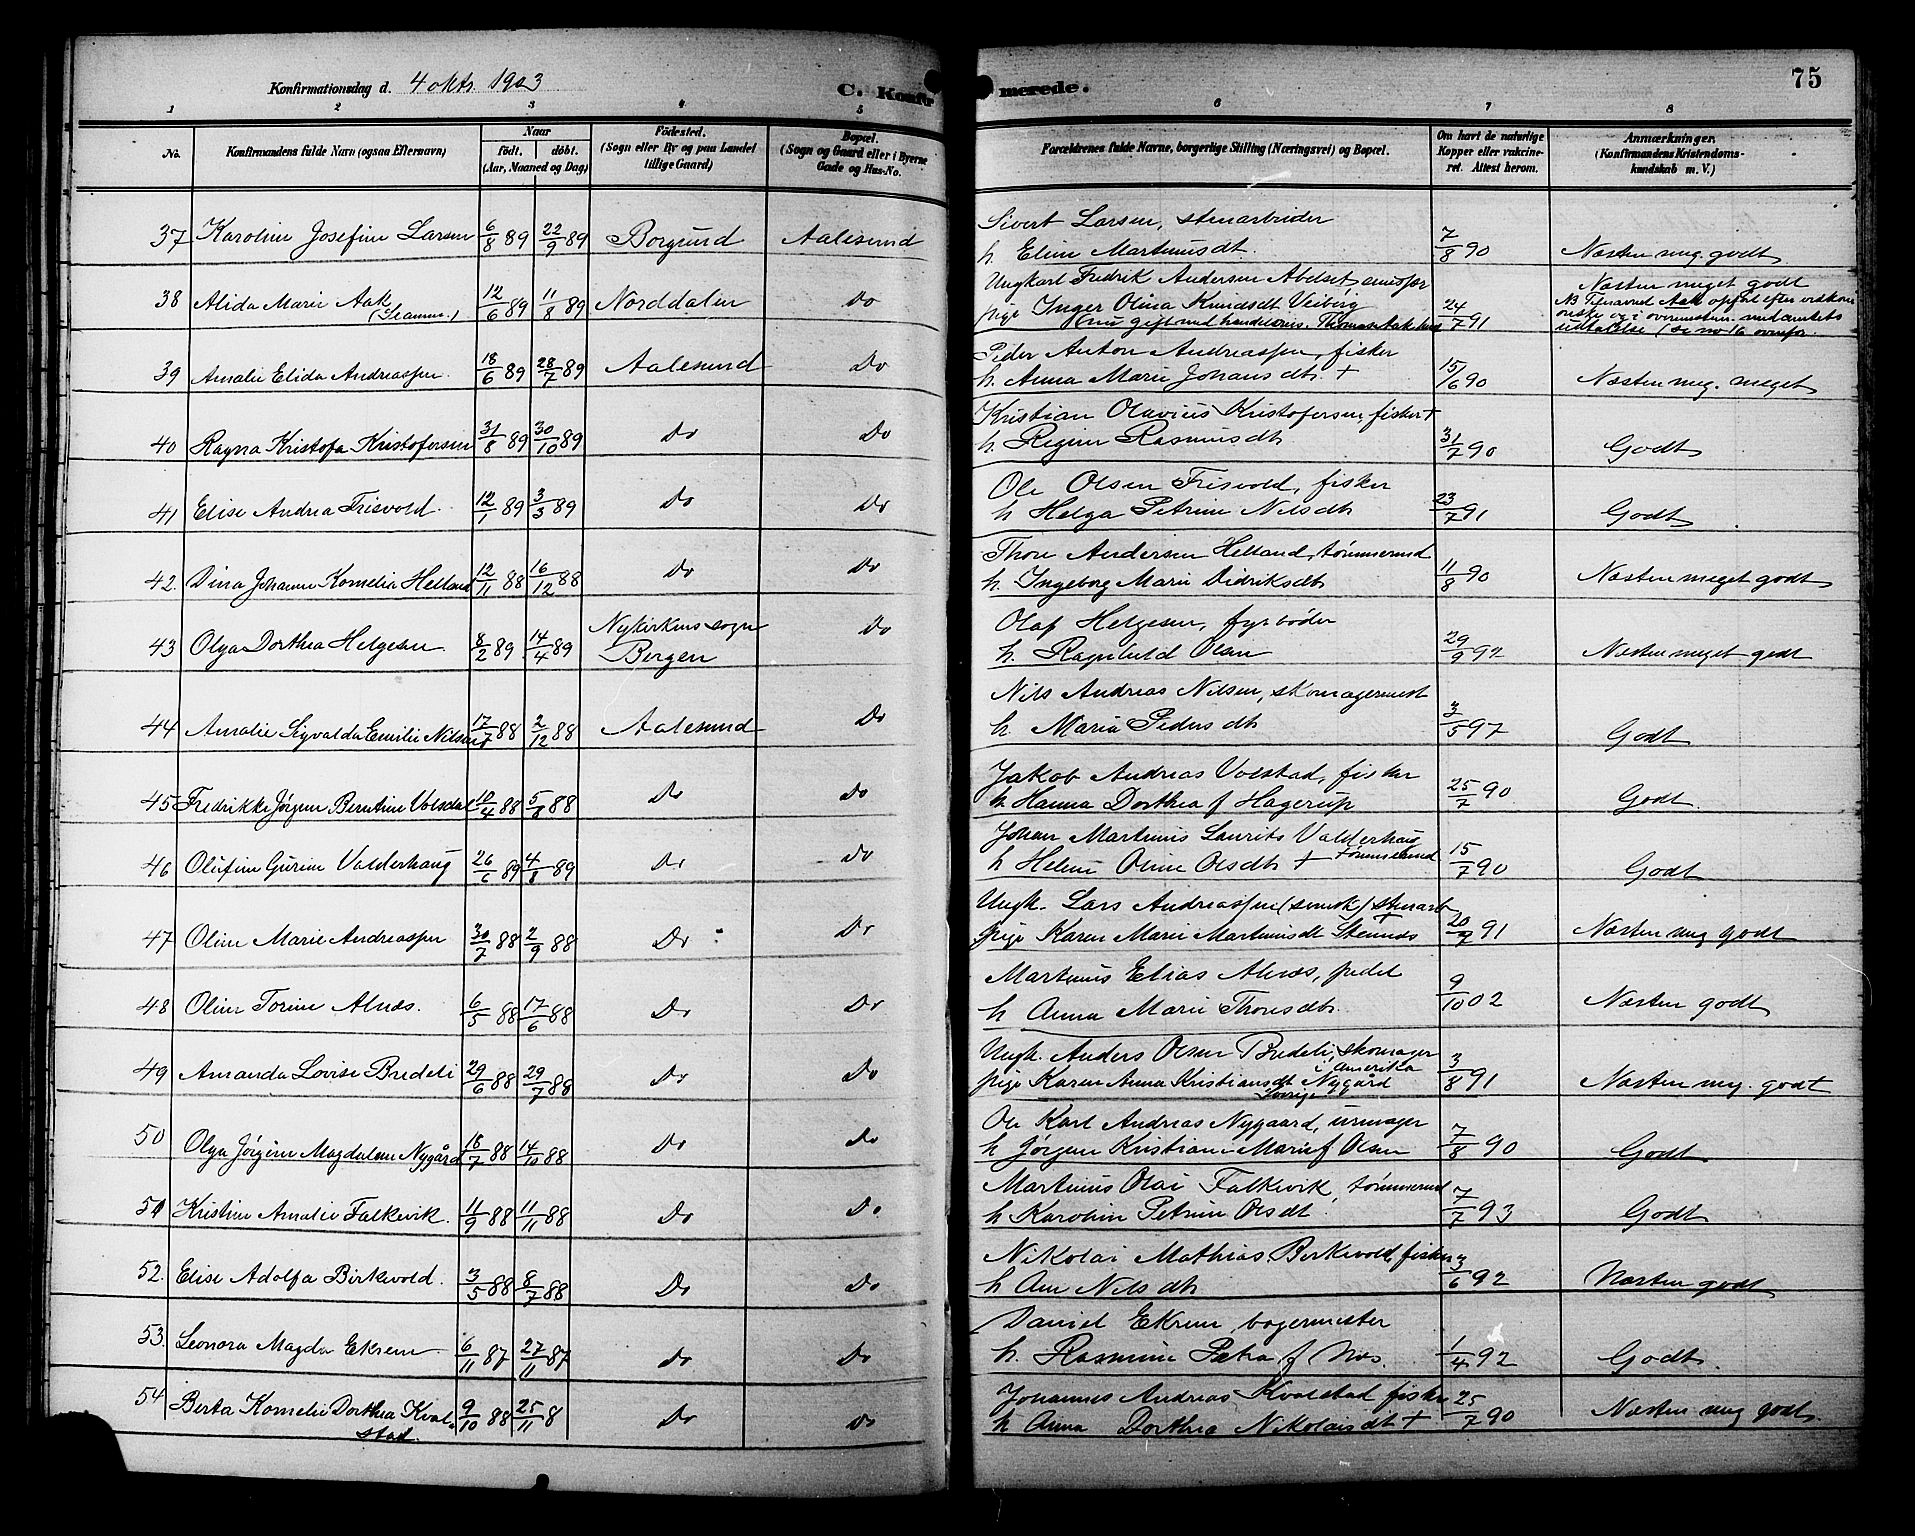 Konfirmationsdag d. 4 oktr. 1903
C. Konfirmerede.
75
1 2 3 4 5 6 7 8
No.
Konfirmandens fulde Navn (ogsaa Efternavn)
Naar
født. døbt.
(Aar, Maaned og Dag)
Fødested.
(Sogn eller By og paa Landet
tillige Gaard)
Bopæl.
(Sogn og Gaard eller i Byerne
Gade og Hus-No.
Forældrenes fulde Navne, borgerlige Stilling (Næringsvei) og Bopæl.
Om havt de naturlige
Kopper eller vakcine-
ret. Attest herom.
Anmærkninger.
(Konfirmandens Kristendoms-
kundskab m. V.)
37 Karoline Josefine Larsen 6/8 89 22/9 89 Borgund Aalesund
Sivert Larsen, stenarbeider
h. Eline Martinusdt. 7/8 90 Næsten meg. godt
38 Alida Marie Aak 12/6 89 11/8 89 Norddalen Do
Ungkarl Fredrik Andersen Abelset
pige Inger Olina Knudsdt Veiberg 24/7 91 Næsten meget godt
39 Amalie Elida Andreassen 18/6 89 28/7 89 Aalesund Do
Peder Anton Andreassen, fisker
h. Anna Marie Johansdt. + 15/6 90 Næsten meg. meget
40 Ragna Kristofa Kristofersen 31/8 89 30/10 89 Do Do
Kristian Olavius Kristofersen, fisker +
h. Regine Rasmusdt. 31/7 90 Godt
41 Elise Andrea Frisvold. 12/1 89 3/3 89 Do Do
Ole Olsen Frisvold, fisker
h Helga Petrine Nilsdt 23/7 91 Godt
42. Dina Johanne Kornelia Helland 12/11 88 16/12 88 Do Do
Thore Andersen Helland, tømmermd
h. Ingeborg Marie Didriksdt 11/8 90 Næsten meget godt
43 Olga Dorthea Helgesen 8/2 89 14/4 89 Nykirkens sogn
Bergen Do
Olaf Helgesen, fyrbøder
h. Ragnhild Olsen 29/9 92 Næsten meget godt
44 Amalie Sigvalda Emilie Nilsen 17/7 88 2/12 88 Aalesund Do
Nils Andreas Nilsen, skomagermest
h. Maria Pedersdt 3/5 97 Godt
45 Fredrikke Jørgine Berntine Volsdal 10/4 88 5/8 88 Do Do
Jakob Andreas Volstad, fisker
h. Hanna Dorthea f Hagerup 25/7 90 Godt.
46 Olufine Gurine Valderhaug 26/6 89 4/8 89 Do Do
Johan Martinus Laurits Valderhaug
h Helene Oline Olsdt + tømmermd 15/7 90 Godt
47 Oline Marie Andreassen 30/7 88 2/9 88 Do Do
Ungk. Lars Andreassen (svensk) stenarb
pige Karen Marie Martinusdt Stennes 20/7 91 Næsten meg godt
48 Oline Torine Alnæs. 6/5 88 17/6 88 Do Do
Martinus Elias Alnæs, pedel
h Anna Marie Thoresdt. 9/10 02 Næsten godt
49 Amanda Lovise Bredeli 29/6 88 29/7 88 Do Do
Ungk. Anders Olsen Bredeli, skomager
i Amerika
pige Karen Anna Kristiansdt Nygård 3/8 91 Næsten meg. godt
50 Olga Jørgine Magdalene Nygård 18/7 88 14/10 88 Do Do
Ole Karl Andreas Nygaard, urmager
h Jørgine Kristiane Marie f Olsen 7/8 90 Godt
51 Kristine Amalie Falkevik. 11/9 88 11/11 88 Do Do
Martinus Olai Falkevik, tømmermd
h Karoline Petrine Olsdt. 7/7 93 Godt
52. Elise Adolfa Birkevold. 3/5 88 8/7 88 Do Do
Nikolai Mathias Berkevold, fisker
h Ane Nilsdt 3/6 92 Næsten godt
53. Leonora Magda Ekrem. 6/11 87 27/11 87 Do Do
Daniel Ekrem, bagermester
h. Rasmine Petra f Nes. 1/4 92 Godt.
54 Berta Kornelie Dorthea Kval-
stad. 9/10 88 25/11 8 Do Do
Johannes Andreas Kvalstad fisker
h Anna Dorthea Nikolaisdt + 25/7 90 Næsten meg godt.